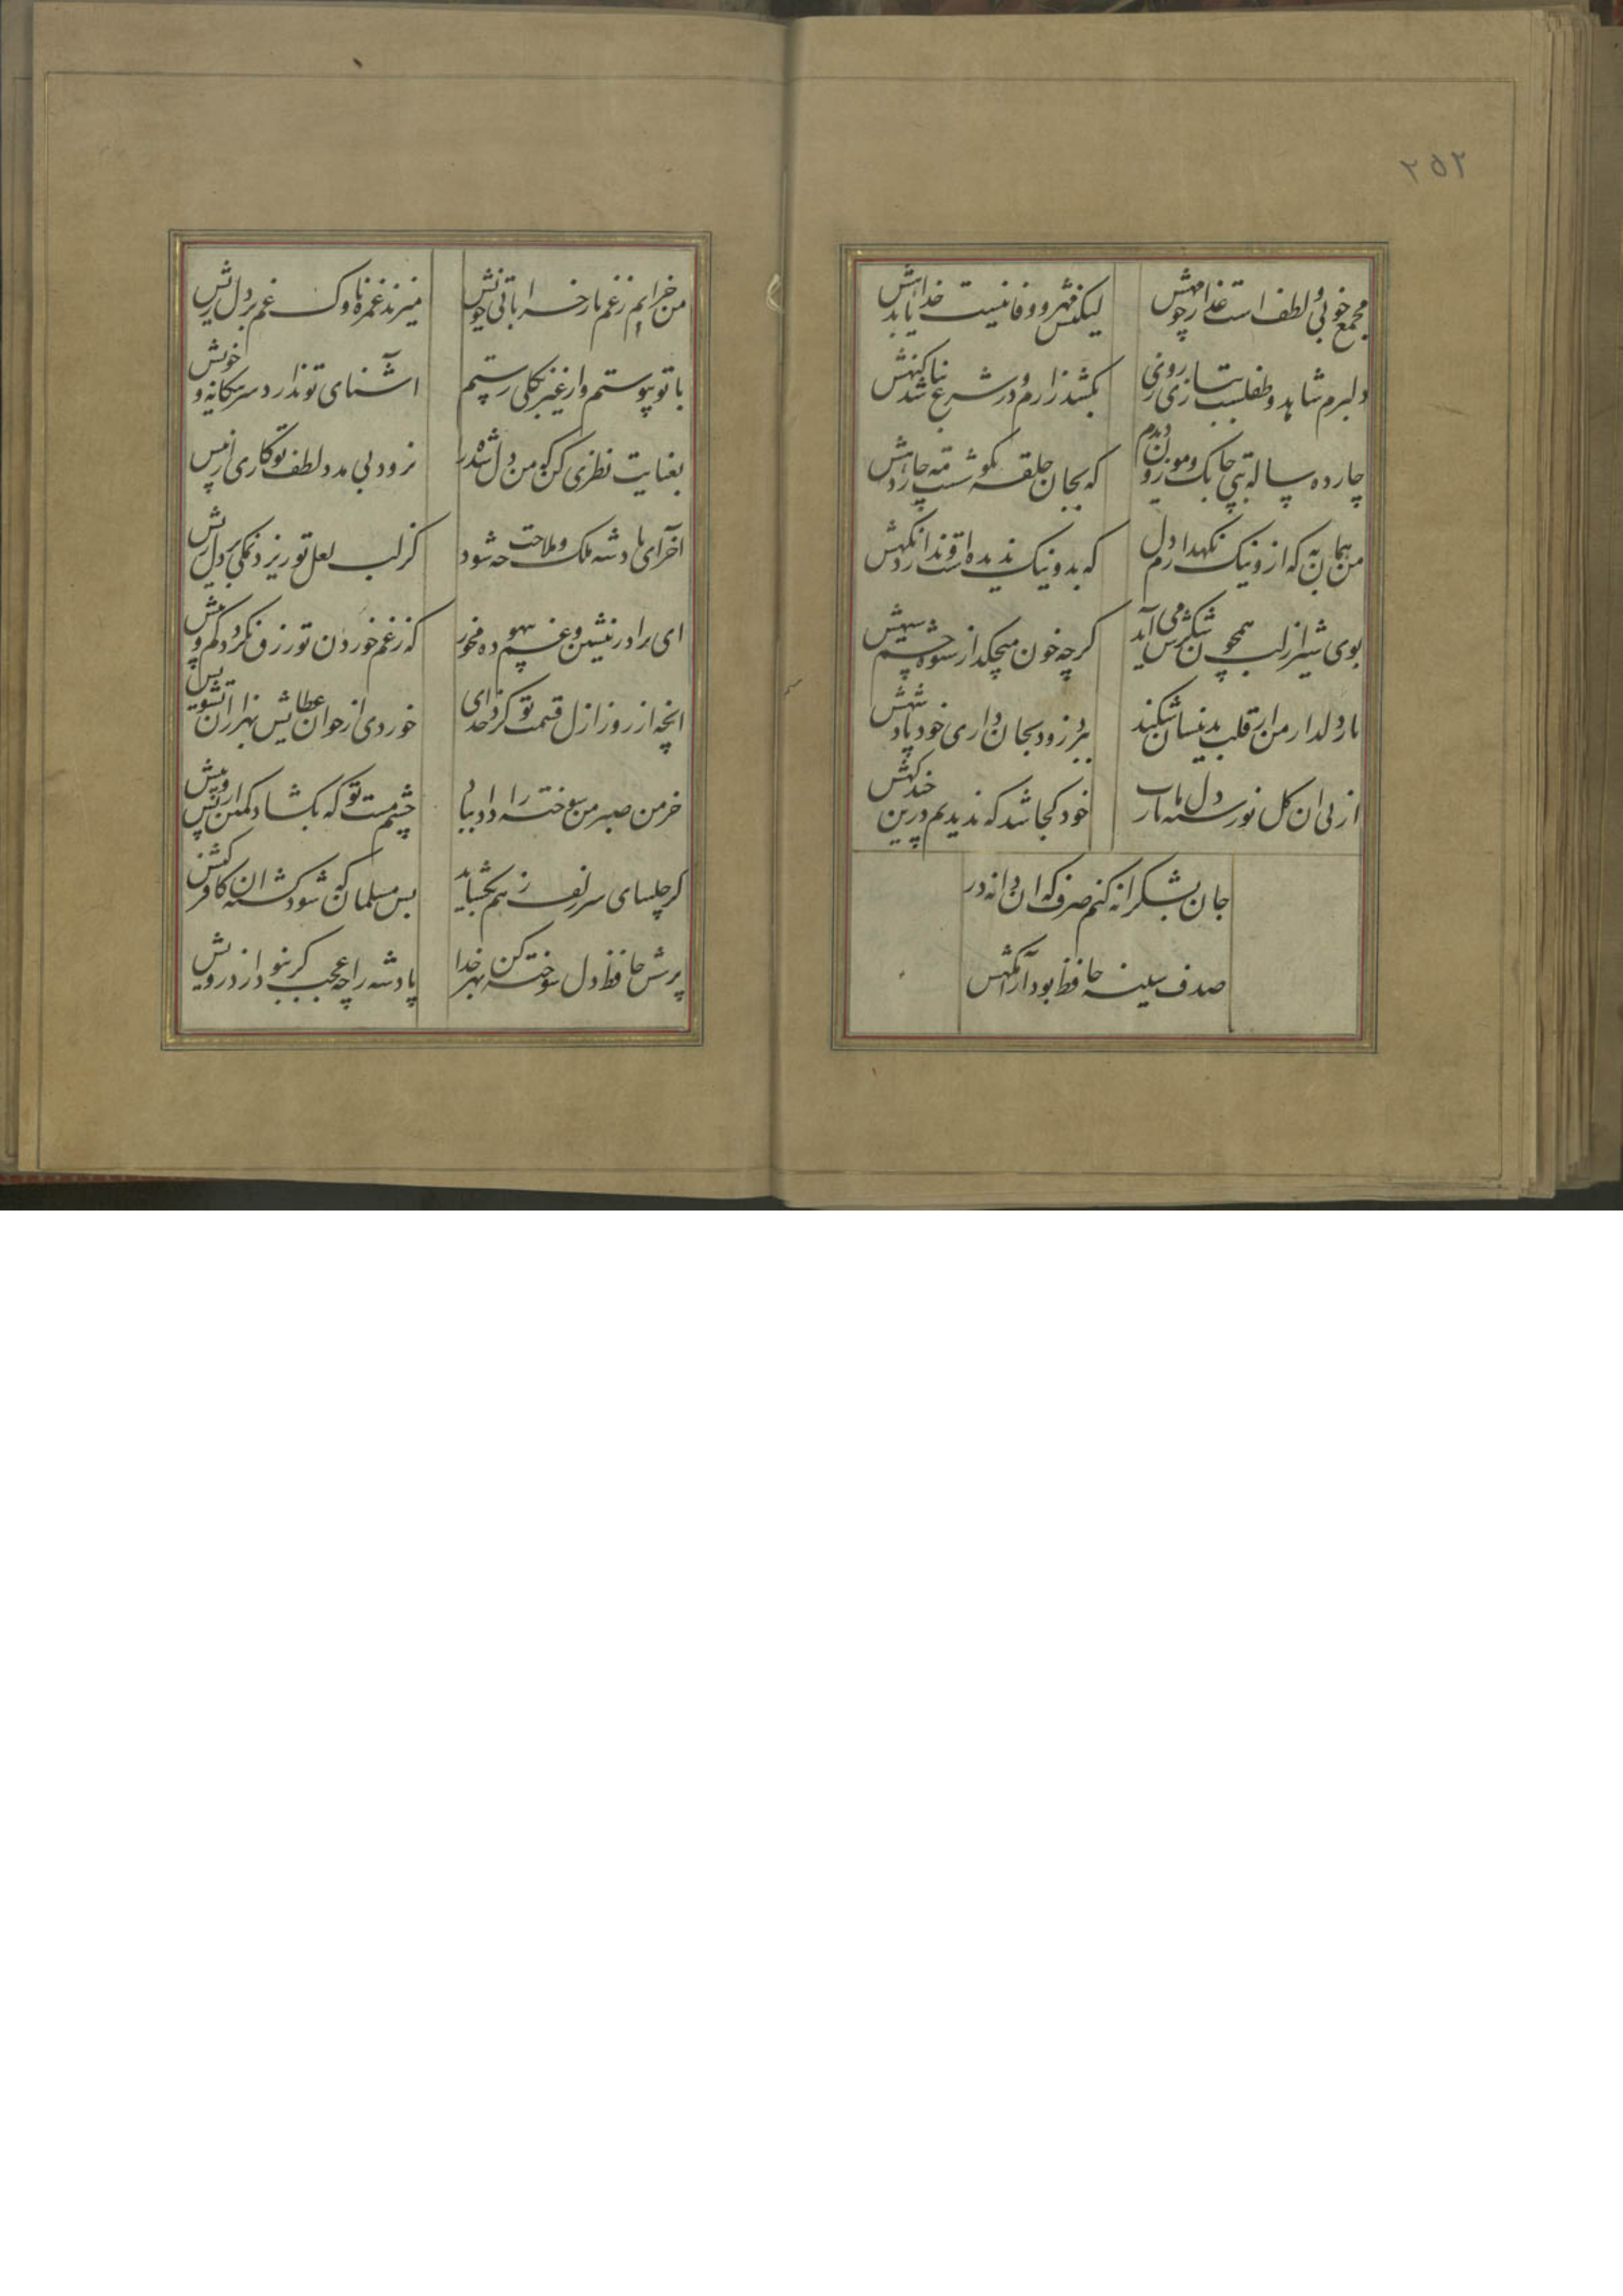 ۲۵۲
مجمع خوبی و لطف است عذار چو مهش
لیکنش مهر و وفا نیست خدایا بدهش
دلبرم شاهد و طفلست ببازی روزی
بکشد زارم و در شرع نباشد کنهش
چارده ساله بتی چابک و موزون دارم
که بجان حلقه بکوشست مه چاردهش
من همان به که ازو نیک نکهدارم دل
که بد و نیک ندیدست و ندارد نکهش
بوی شیر از لب همچون شکرش می آید
کرچه خون میچکد از شیوه چشم سیهش
یار دلدار من ار قلب بدینسان شکند
ببرد زود بجان داری خود پادشهش
از پی آن کل نورسته دل ما یارب
خود کجا شد که ندیدیم درین
جان بشکرانه کنم صرف کر آن دانه در
صدف سینه حافظ بود آرامکهش
من خرابم ز غم یار خراباتی خویش
میزند غمزه او ناوک غم بر دل ریش
با تو پیوستم و از غیر تو بکلی
آشنای تو ندارد سر بیکانه و خویش
بعنایت نظری کن که من دل شده را
نرود بی مدد لطف تو کاری از پیش
آخر ای پادشه ملک و ملاحت چه شود
کر لب لعل تو ریزد نمکی بر دل ریش
ای برادر نشین و غم بیهوده مخور
که ز غم خوردن تو رزق نکردد کم و بیش
آنچه از روز ازل قسمت تو کرد خدای
خوردی از خوان عطایش
خرمن صبر من سوخته را داد بباد
چشم مست تو که بکشاد کمین از پس و پیش
کر چلیپای سر زلف ز هم بکشاید
بس مسلمان که شود کشته آن کافر کیش
پرسش حافظ دل سوخته کن بهر خدا
پادشه را چه عجب کر بنوازد درویش